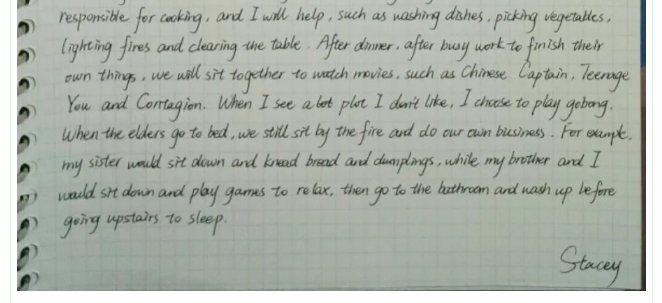 responsible for cooking, and I will help, such as washing dishes, picking vegetables,
lighting fires and clearing the table. After dinner, after busy work to finish their
own things, we will sit together to watch movies, such as Chinese Captain, Teenage
You and Contagion. When I see a plot I don't like, I choose to play gebang.
When the elders go to bed, we still sit by the fire and do our own business. For example,
my sister would sit down and knead bread and dumplings, while my brother and I
would sit down and play games to relax, then go to the bathroom and wash up before
going upstairs to sleep.
Stacey